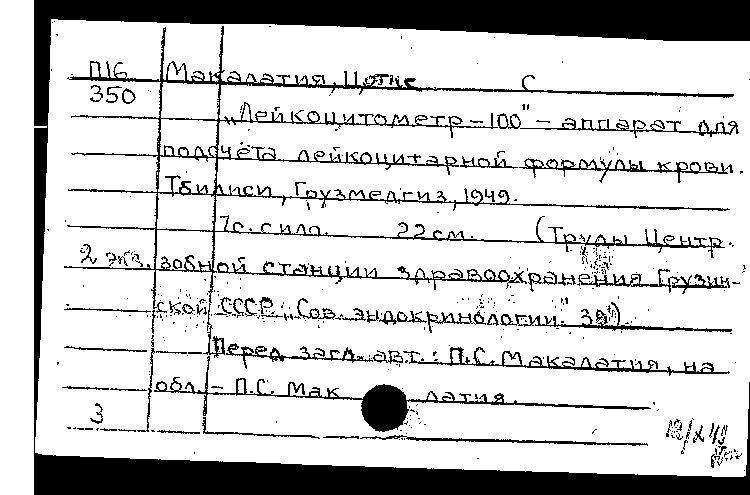 П16 Макалатия, Цотне С
350
„Лейкоцитометр-100" - аппарат для
подсчёта лейкоцитарной формулы крови.
Тбилиси, Грузмедгиз, 1949.
7с. с илл. 22 см. (Труды Центр.
2 экз. зобной станции здравоохранения Грузин-
ской СССР. „Сов. эндокринологии."
Перед загл. авт.: П.С. Макалатия, на
обл. - П.С. Мак латия.
3